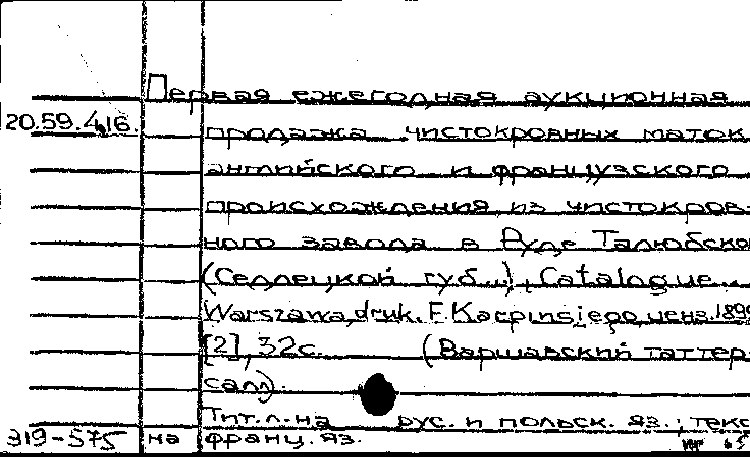 Первая ежегодная аукционная
20.59.416. продажа чистокровных маток
английского и французского
происхождения из чистокров-
ного завода в Руде Талюбской
(Седлецкой губ...), Catalogue...
Warszawa, druk. F. Karpinsiego, ценз. 1899
[2], 32с. (Варшавский таттер-
салл).
Тит. л. на рус. и польск. яз.; текс
319-575 на франц. яз.